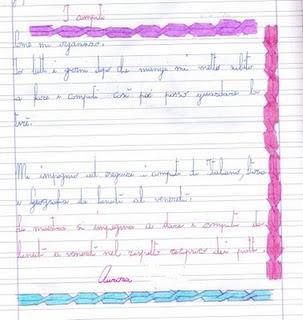 I compiti
Come mi organizzo.
Io tutti i giorni dopo che mangio mi metto subito
a fare i compiti così poi posso guardare la
tivù.
Mi impegno ad eseguire i compiti di Italiano, storia
e geografia da lunedì al venerdì.
La maestra si impegna a dare i compiti da
lunedì a venerdì nel rispetto reciproco dei patti.
Aurora